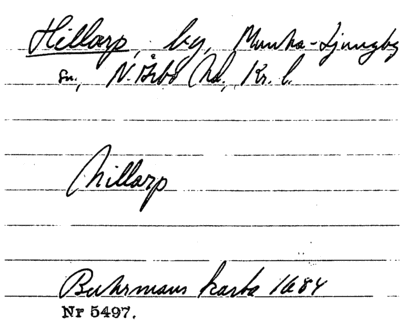 Hillarp, by, Munka-Ljungby
sn, N. Åsbo hd, Kr. l.
Hillarp
Buhrmans karta 1684
Nr 5497.